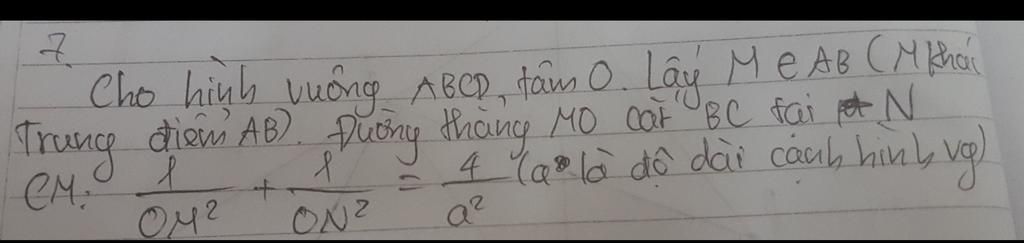 7.
Cho hình vuông ABCD, tâm O. Lấy M ∈ AB (M khác
Trung điểm AB). Đường thẳng MO cắt BC tại N
CM: 1/OM² + 1/ON² = 4/a² (a là độ dài cạnh hình vg)